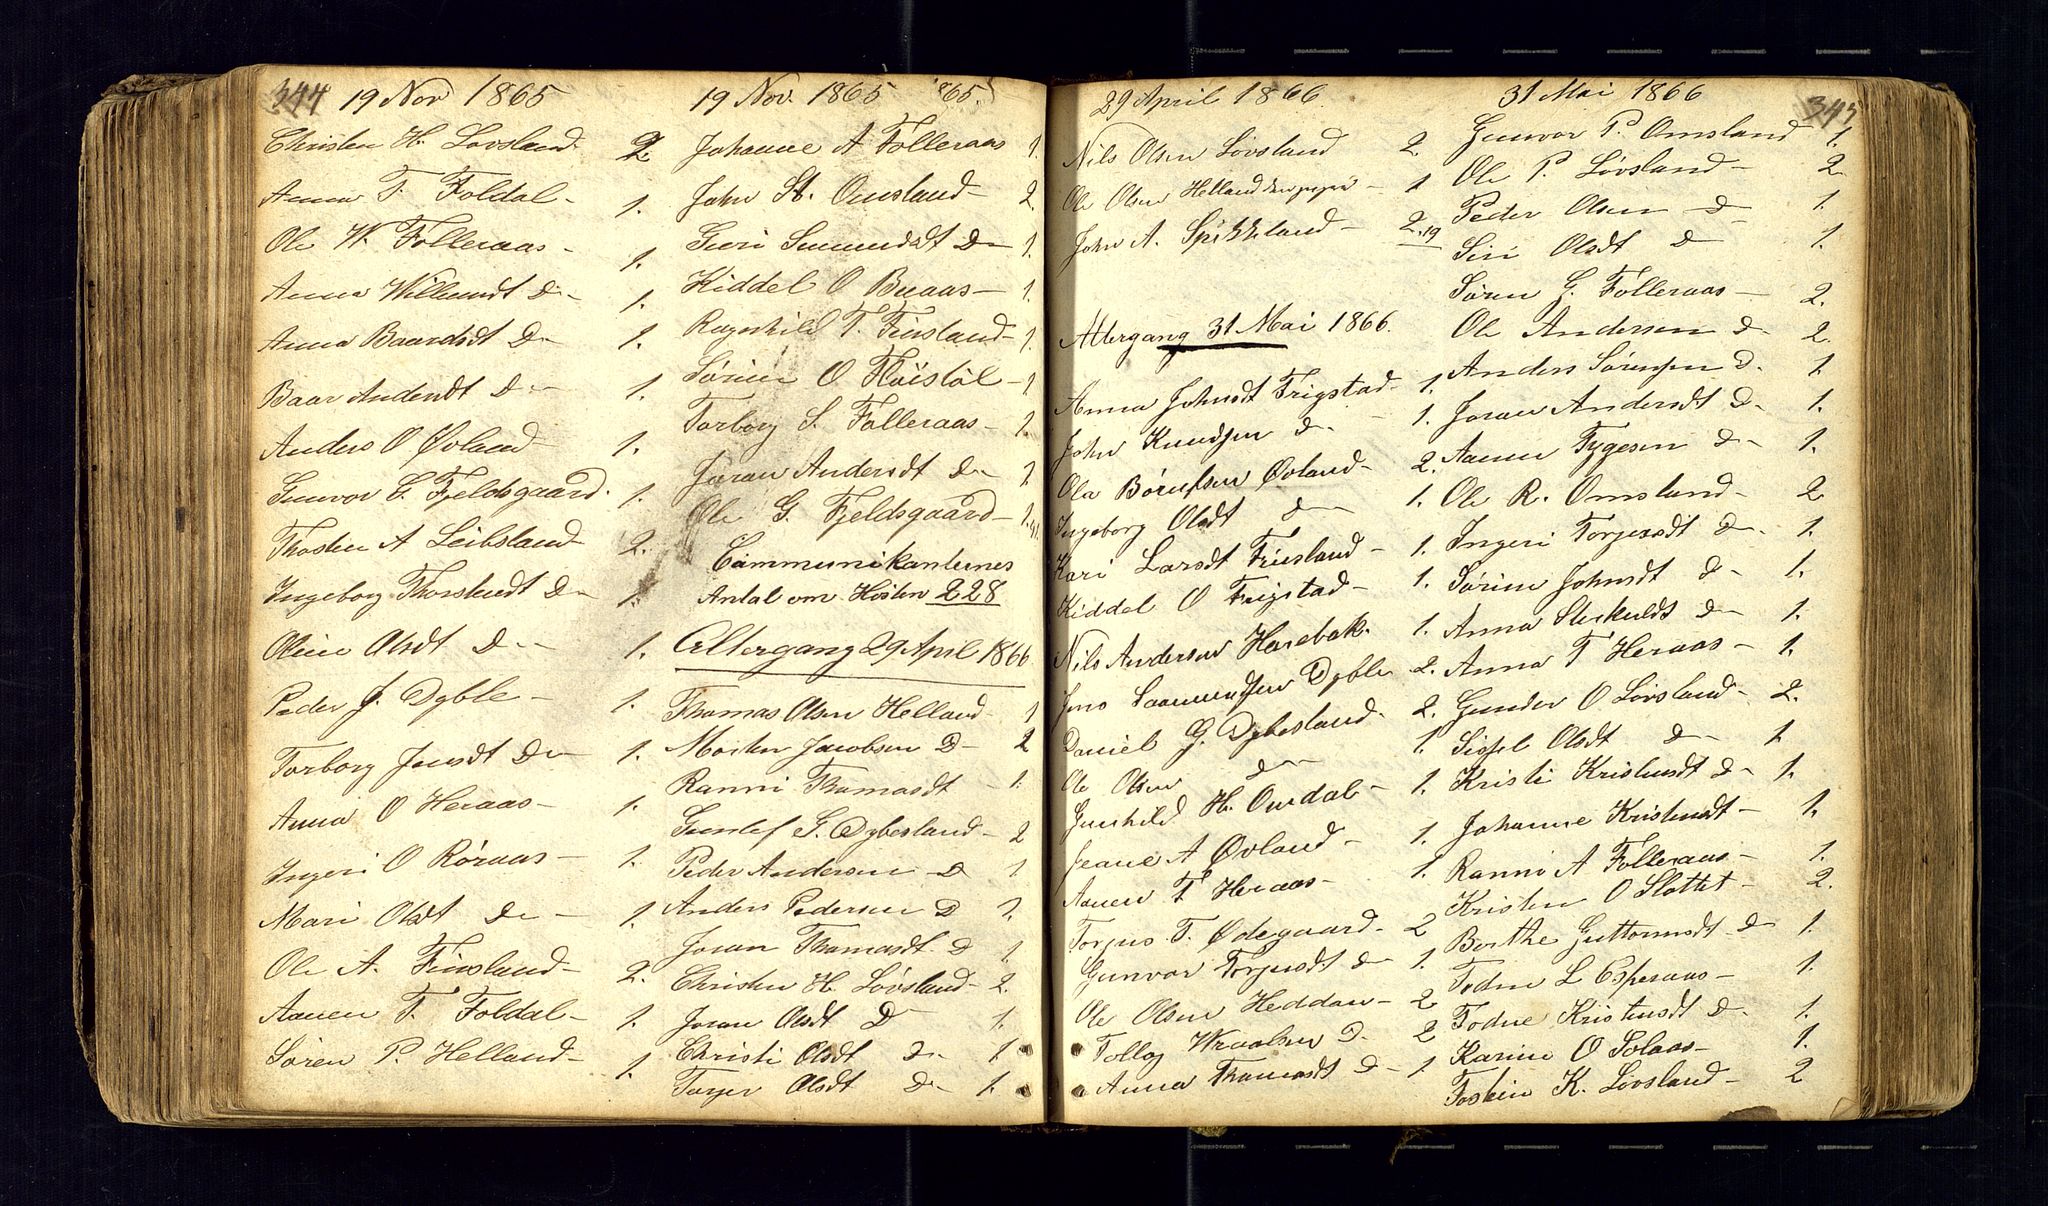 344 19 Nov 1865
Christen H. Lovsland 2.
Anna T. Foldal - 1.
Ole W. Følleraas - 1.
Anna Willumdt D - 1.
Anna Baardsdt D - 1.
Baar Andersdt D - 1.
Anders O Øvland 1.
Gunvor E. Fjeldsgaard. 1.
Thosten A Leibsland 2.
Ingeborg Thorstendt D - 1.
Oline Olsdt D - 1.
Peder J. Dyble - 1.
Torborg Jensdt D - 1.
Anna O Heraas - 1.
Ingeri O Røraas - 1.
Mari Olsdt D - 1.
Ole A. Finsland - 2.
Aanen T. Foldal - 1.
Søren P. Helland - 1.
19 Nov. 1865 '65
Johanne A Følleraas 1.
John St. Omsland - 2.
Gieri Gunnuldt D - 1.
Kiddel O Buaas - 1.
Ragnhild T. Finsland - 1.
Sørine O Høistøl - 1
Torborg S. Følleraas - 1.
Joran Andersdt D - 1
Ole G. Fjeldsgaard - 1.
Communikanternes
Antal om Høsten 228
Altergang 29 April 1866
Thomas Olsen Helland - 1
Mosten Jacobsen D - 2
Ranni Thomasdt - 1.
Guntlef G. Dybesland - 2
Peder Andersen D 1
Anders Pedersen D 1.
Joran Thomasdt D 1
Christen H. Løvsland - 2.
Joran Olsdt D - 1.
Christi Olsdt D - 1.
Torjer Olsdt D - 1.
29 April 1866.
Nils Olsen Lovsland 2.
Ole Olsen Helland - 1
John A. Spikkeland - 2. 19
Altergang 31 Mai 1866.
Anna Johnsdt Frigstad - 1.
John Knudsen D - 1.
Ola Børufsen Øvland - 2.
Ingeborg Olsdt D - 1.
Kari Larsdt Finsland - 1.
Kiddel O Frigstad - 1.
Nils Andersen Harebak. 1.
Jens Saamundsen Dyble 2.
Daniel G. Dybesland. 2.
Ole Olsen D - 1.
Gunhild H. Omdal - 1.
Jeane A Øvland - 1.
Aanen T Heraas - 1.
Torjus T. Ødegaard - 2
Gunvor Torjusdt D - 1.
Ole Olsen Heddan - 2
Tollog Wraalsen D - 2
Anna Thomasdt D - 1.
31 Mai 1866 345
Gunvor P. Omsland 1.
Ole P. Løvsland - 2.
Peder Olsen D 1.
Siri Olsdt D 1.
Søren G. Følleraas - 2.
Ole Andersen D - 2.
Anders Sørensen D - 1.
Joran Andersdt D - 1.
Aanen Tygesen D - 1.
Ole R. Omsland - 2
Ingeri Torjusdt D - 1.
Sørine Johnsdt D - 1.
Anna Sterkuldt D - 1.
Anna T Heraas - 1.
Gunder O Lovsland - 2.
Sissel Olsdt D - 1
Kristi Kristensdt D - 1.
Johanne Kristensdt - 1.
Ranni A Følleraas - 1.
Kristen O Slottet - 2.
Berthe Guttormsdt D 1.
Todne L Esperaas - 1.
Todne Kristensdt D - 1.
Karine O Solaas - 1.
Tosten K. Lovsland - 2